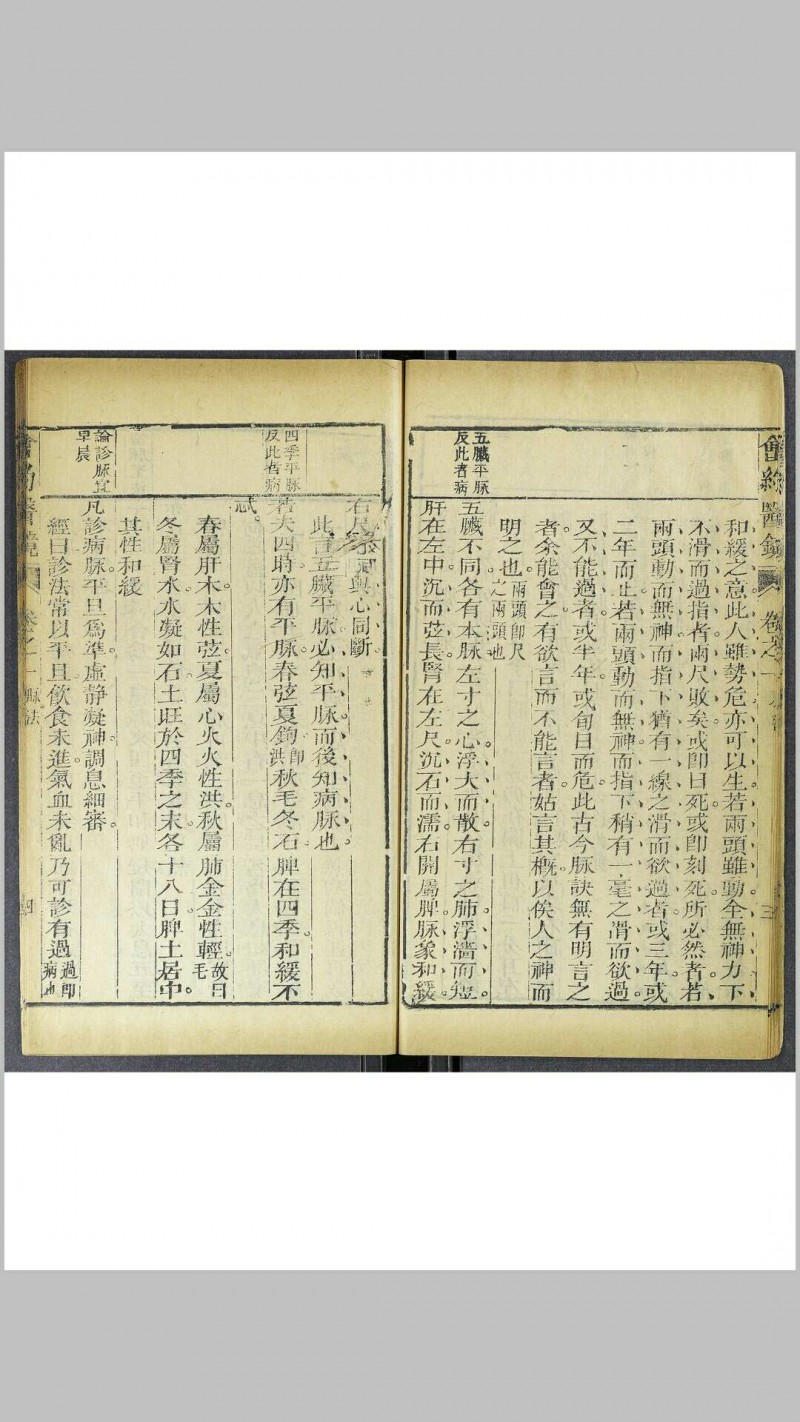 會約醫鏡 卷之一 三
和緩之意此人雖勢危亦可以生若兩頭雖動全無神力下
不滑而過指者兩尺敗矣或即日死或即刻死所必然者若
兩頭動而無神而指下猶有一線之滑而欲過者或三年或
二年而止若兩頭動而無神而指下稍有一毫之滑而欲過
又不能過者或半年或旬日而危此古今脉訣無有明言之
者余能會之有欲言而不能言者姑言其概以俟人之神而
明之也 兩頭卽尺
之兩頭也
五臟平脉
反此者病
五臟不同各有本脉左寸之心浮大而散右寸之肺浮濇而短
肝在左中沉而弦長腎在左尺沉石而濡右關屬脾脉象和緩
右尺 與心同斷
此言五臟平脉必知平脉而後知病脉也
四季平脉
反此者病
若夫四時亦有平脉春弦夏鉤 卽
洪 秋毛冬石脾在四季和緩不
忒
春屬肝木木性弦夏屬心火火性洪秋屬肺金金性輕 故曰
毛
冬屬腎水水凝如石土旺於四季之末各十八日脾土居中
其性和緩
論診脉宜
早晨
凡診病脉平旦爲準虛静凝神調息細審
經曰診法常以平旦飲食未進氣血未亂乃可診有過 過卽
病也
會約醫鏡 卷之一 脉法 四